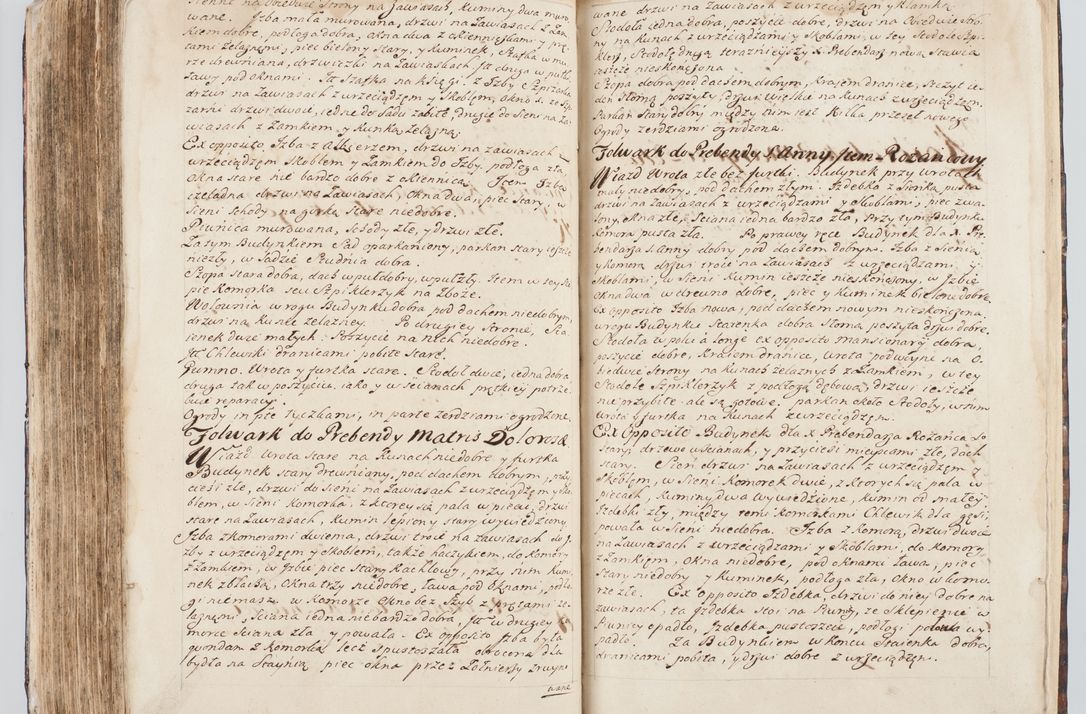 Sienne na obedwie strony na zawiasach, kuminy dwa muro,
wane. Izba mała murowana, drzwi na Zawiasach z Zam,
kiem dobre, podłoga dobra, okna dwa z okiennicami, y prę,
tami żelaznemi, piec bielony stary, y kuminek, szafka w mu,
rze drewniana, drzwiczki na Zawiaskach, Itt druga w pułk
ławy pod oknami. Itt Szafka na Księgi. z Izby Spizarka
drzwi na Zawiasach z wrzeciądzem y skoblem, okno 1. ze Spi,
zarki drzwi dwoie, iedne do sadu zabite, drugie do Sieni na Za,
wiasach z Zamkiem, y Kunką żelazną.
Ex opposito, Izba z Alkierzem, drzwi na zawiasach z
wrzeciądzem skoblem y Zamkiem do Izby, podłoga zła
Okna stare nie bardzo dobre z okiennicą. Item Izba
czeladna drzwi na Zawiasach, okna dwa, piec stary, w
Sieni schody na gurkę stare niedobre.
Piwnica murowana, schody złe, y drzwi złe.
Za tym Budynkiem Sad oparkaniony, parkan stary ieszcze
niezły, w Sadzie Studnia dobra.
Szopa stara dobra, dach w puł dobry, w puł zły. Item w tey Szo,
pie Komorka seu Szpiklerzyk na Zboże.
Wołownia w rogu Budynku dobra pod dachem niedobrym,
drzwi na Kunie żelazney. Po drugiey stronie, Sta,
ienek dwie małych: Poszycie na nich niedobre.
Itt Chlewiki dranicami pobite stare.
Gumno. Wrota y furtka stare. Stodoł dwie, iedna dobra
druga tak w poszyciu, iako y w ścianach prętkiey potrze,
buie reparacyi.
Ogrody in pte tyczkami, in parte zerdziami ogrodzone
Folwark do Prebendy Matris Dolorosæ
Wiazd Wrota stare na Kunach niedobre y furtka
Budynek stary drewniany, pod dachem dobrym, przy,
ciesi złe, drzwi do Sieni na Zawiasach z wrzeciądzem y Sko,
blem, w Sieni komorka, z ktorey się pala w piecu, drzwi
stare na Zawiasach, Kumin lepiony stary wywiedziony.
Izba z komorami dwiema, drzwi troie na zawiasach do I,
zby z wrzeciądzem y skoblem, także haczykiem, do Komory
z Zamkiem, w Izbie piec stary Kachlowy, przy nim Kumi,
nek z blachą, okna trzy niedobre, ława pod oknami, podło,
gi niemasz. w komorze okno bez szyb z prętami że,
laznemi, Sciana iedna nie bardzo dobra, Itt w drugiey ko,
morce sciana zła y powała. Ex opposito Izba była
quondam z Komorką lecz spustoszała obrocona dla
bydła na Staynią, piec okna przez Zołnierzy zruyno
wane
wane drzwi na Zawiasach z wrzeciądzem y Klamką
Stodoła iedna dobra, poszycie dobre, drzwi na Obiedwie stro,
ny na Kunach z wrzeciądzami y Skoblami, w tey Stodole Szpi,
klerz, Stodołę drugą teraznieyszy X. Prebendarz nową Stawia
ieszcze nieskonczona.
Szopa dobra pod dachem dobrym, Krajem dranice, Szczyt ie,
den Słomą poszyty, drzwi wielkie na Kunach z wrzeciądzem.
Parkan stary dobry między nim iest kilka przeseł nowego
Ogrody zerdziami ogrodzone.
Folwark do Prebendy S. Anny seu Rozancowy
Wiazd Wrota złe bez furtki. Budynek przy wrotach
mały niedobry, pod dachem złym. Izdebka z Sionką pusta
drzwi na zawiasach z wrzeciądzami y skoblami, piec zwa,
lony, okna złe, Sciana iedna bardzo zła, przy tym Budynku
Komora pusta zła. Po prawey ręce Budynek dla X. Pre,
bendarza S. Anny dobry pod dachem dobrym. Izba z Sienią,
y komorą drzwi troie na Zawiasach z wrzeciądzami y
skoblami, w Sieni Kumin ieszcze nieskonczony. w Izbie
okna dwa w drewno dobre, piec y kuminek bielone dobre.
Ex opposito Izba nowa, pod dachem nowym nieskonczona
w rogu Budynku Staienka dobra Słomą poszyta drzwi dobre.
Stodoła w polu a longe ex opposito mansionarij dobra,
poszycie dobre, Krajem dranice, Wrota podwoyne na O,
biedwie strony na Kunach żelaznych z Zamkiem, w tey
Stodole Szpiklerzyk z podłogą dębową, drzwi ieszcze
nie przybite ale są gotowe. parkan około Stodoły, w nim
wrota y furtka na Kunach z wrzeciądzem.
Ex Opposito Budynek dla X. Prebendarza Rożanca do
stary, drzewo w scianach, y przyciesi mieyscami złe, dach
stary. Sien drzwi na Zawiasach z wrzeciądzem y
Skoblem, w Sieni Komorek dwie, z ktorych się pala w
piecach, Kuminy dwa wywiedzione, kumin od małey
Izdebki zły, między temi komorkami Chlewik dla gęsi,
powała w Sieni niedobra. Izba z Komorą, drzwi dwoie
na Zawiasach z wrzeciądzami y skoblami, do komory
z Zamkiem, Okna niedobre, pod oknami ława, piec
stary niedobry y kuminek, podłoga zła, Okno w komo,
rze złe. Ex opposito Izdebka, drzwi do niey dobre na
zawiasach, ta Izdebka stoi na Piwnicy, ze sklepienie w
Piwnicy opadło, Izdebka pustoszeie, podłogi wy
padło. Za Budynkiem w Koncu staienka dobra,
dranicami pobita, y drzwi dobre z wrzeciądzem.